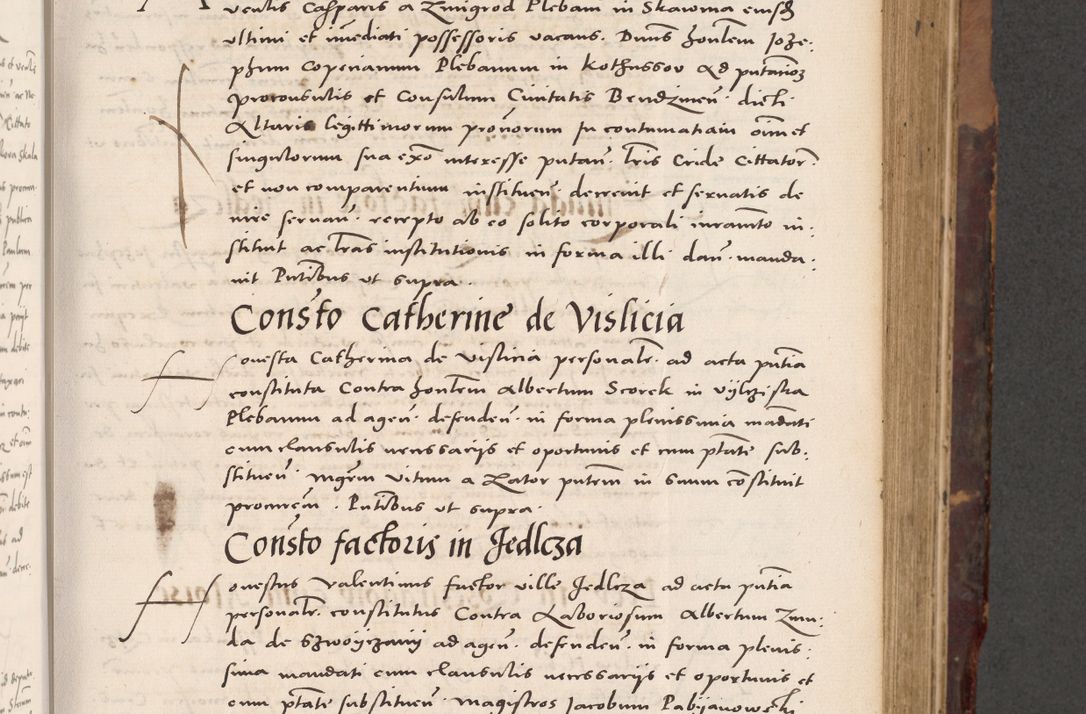 ventis Casparis a Zmigrod Plebani in Skawina eiusd
ultimi et immediati possessoris vacans. Dnus honlem Joze:
phum Copenanum Plebanum in Kothussov Ad putanioz
proconsulis et Consulum Civitatis Bendzinen. dicti
Altaris legittimorum pronorum In contumatiam oim et
singulorum sua exo interesse putan. lris Cride Cittator.
et non comparentium instituen. decrevit et servatis de
iure servan. recepto ab eo solito corporali iuramto in:
stituit ac lras institutionis in forma illi dan. manda:
vit Pntibus ut supra.
Consto Catherine de Vislicia
Honesta Catherina de Vislicia personale. ad acta pntia
constituta Contra honlem Albertum Scorek in
Plebanum ad agen. defenden. in forma plenissima mandati
cum clausulis necessariis et oportunis et cum ptate sub:
stituen. mgrm Vitum a Rator pntem in suum constituit
procurem. Pntibus ut supra.
Consto factoris in Jedlcza
Honestus Valentinus factor ville Jedlcza ad acta pntia
personalr. constitutus Contra Laboriosum Albertum Zmu:
da de ad agen. defenden. in forma plenis:
sima mandati cum clausulis necessariis et oportunis et
cum ptate substituen. magistros Jacobum Pabijanowski